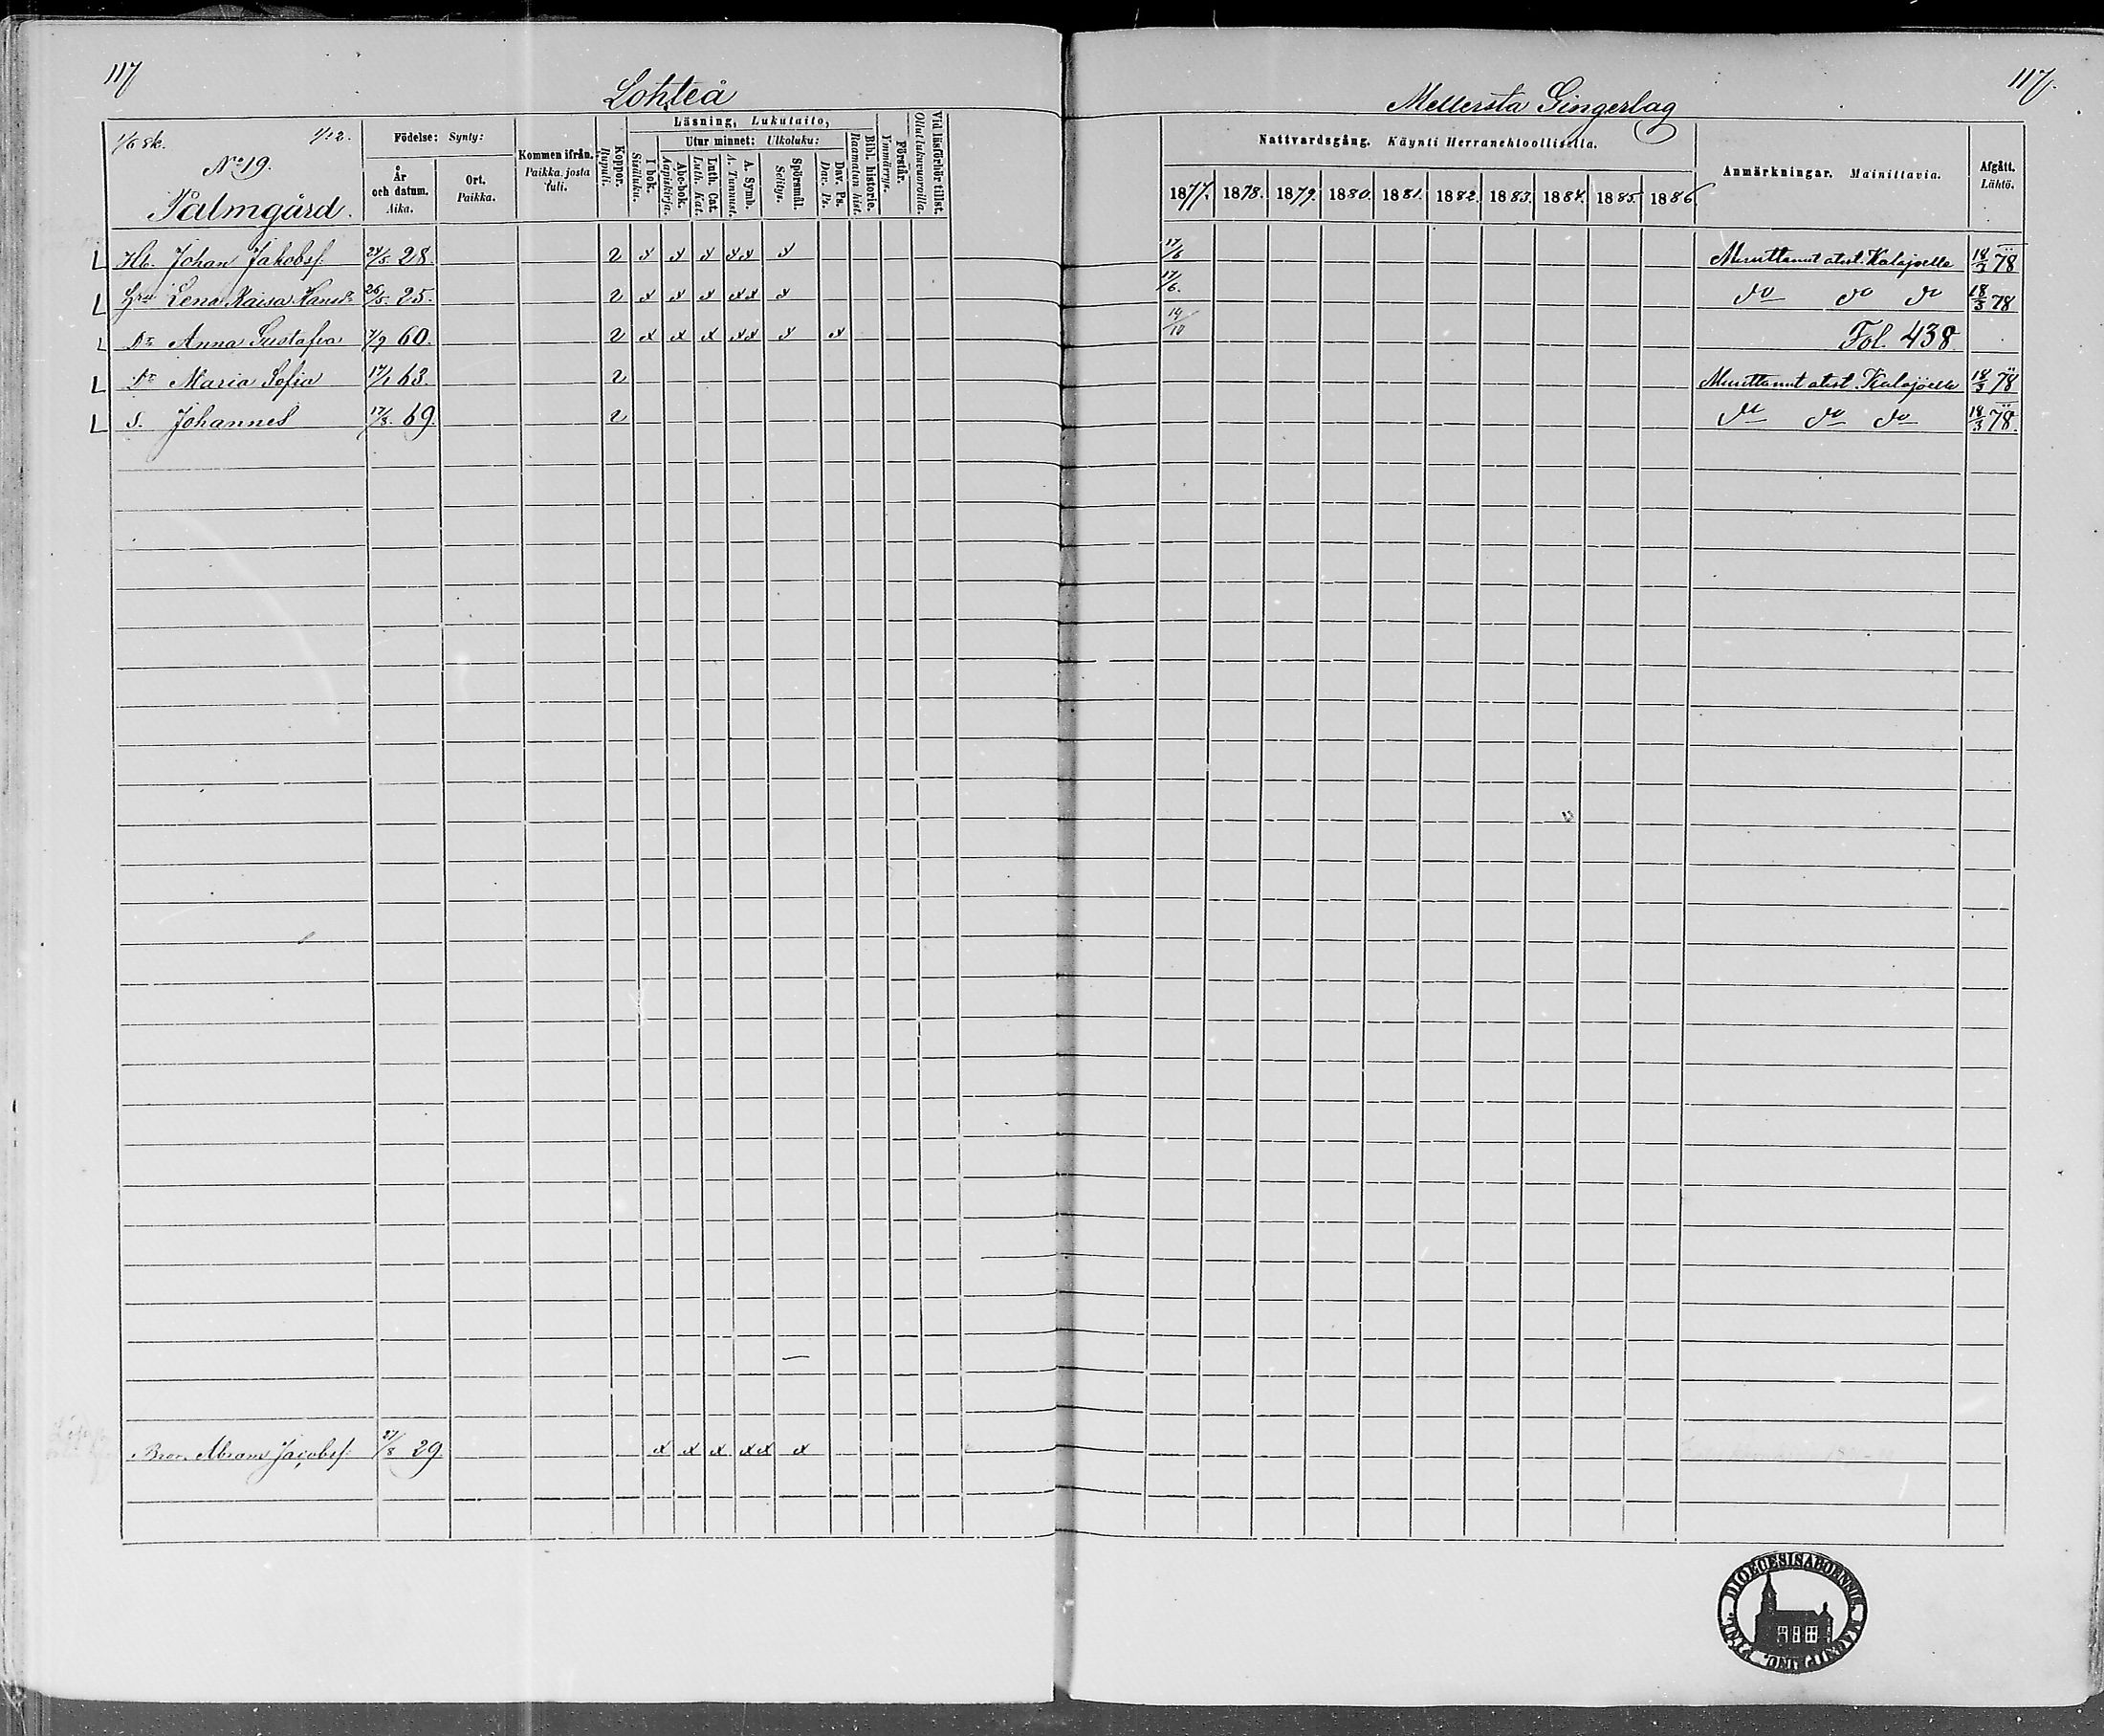 117
Lohteå
1/6 sk. 1/12.
No 19.
Palmgård.
Födelse: Synty:
År och datum. Aika.
Ort. Paikka.
Kommen ifrån. Paikka, josta tuli.
Koppor. Rupuli.
Läsning, Lukutaito,
I bok. Sisäluku.
Utur minnet: Ulkoluku:
Abc-bok. Aapiskirja.
Luth. Cat. Luth. Kat.
A. Symb. A. Tunnust.
Spörsmål. Selitys.
Dav. Ps. Dav. Ps.
Bibl. historie. Raamatun hist.
Förstår. Ymmärrys.
Vid läsförhör tillst. Ollut lukuvuorolla.
Hb. Johan Jakobss. 24/5 28. 2 x x x xx x
Hru Lena Kaisa Hansdr 26/5 25. 2 x x x xx x
Dr Anna Gustafva 7/9 60. 2 x x x xx x x
Dr Maria Sofia 17/1 63. 2
S. Johannes 17/3 69. 2
Bror. Abram Jacobss. 27/8 29 x x x xx x
117.
Mellersta Gingerlag
Nattvardsgång. Käynti Herranehtoollisella.
1877. 1878. 1879. 1880. 1881. 1882. 1883. 1884. 1885. 1886.
Anmärkningar. Mainittavia.
Afgått. Lähtö.
17/6 Muuttanut atest. Kalajoelle 18/3 78
17/6. do do do 18/3 78
14/10 Fol. 438
Muuttanut atest. Kalajoelle 18/3 78
do do do 18/3 78.
DIOECESIS ABOENSIS